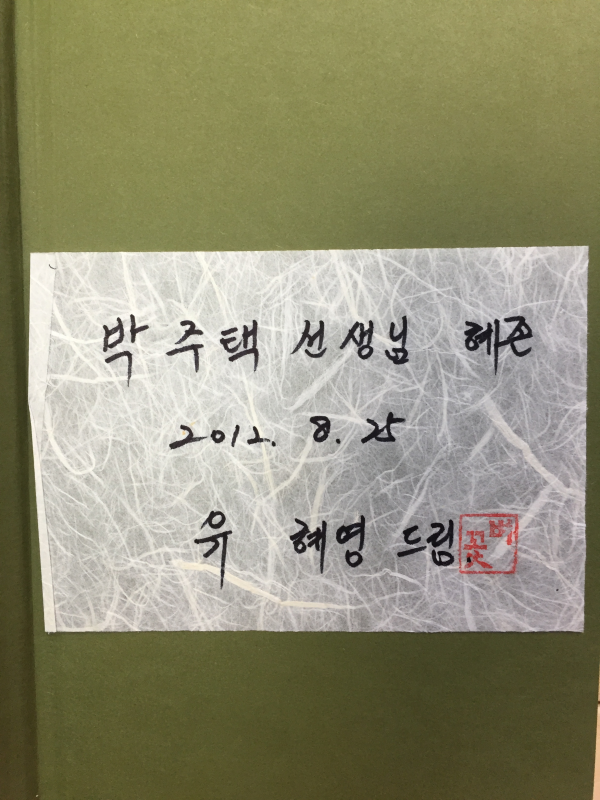 박 주택 선생님 혜존
2012. 8. 25
유 혜영 드림.
꽃